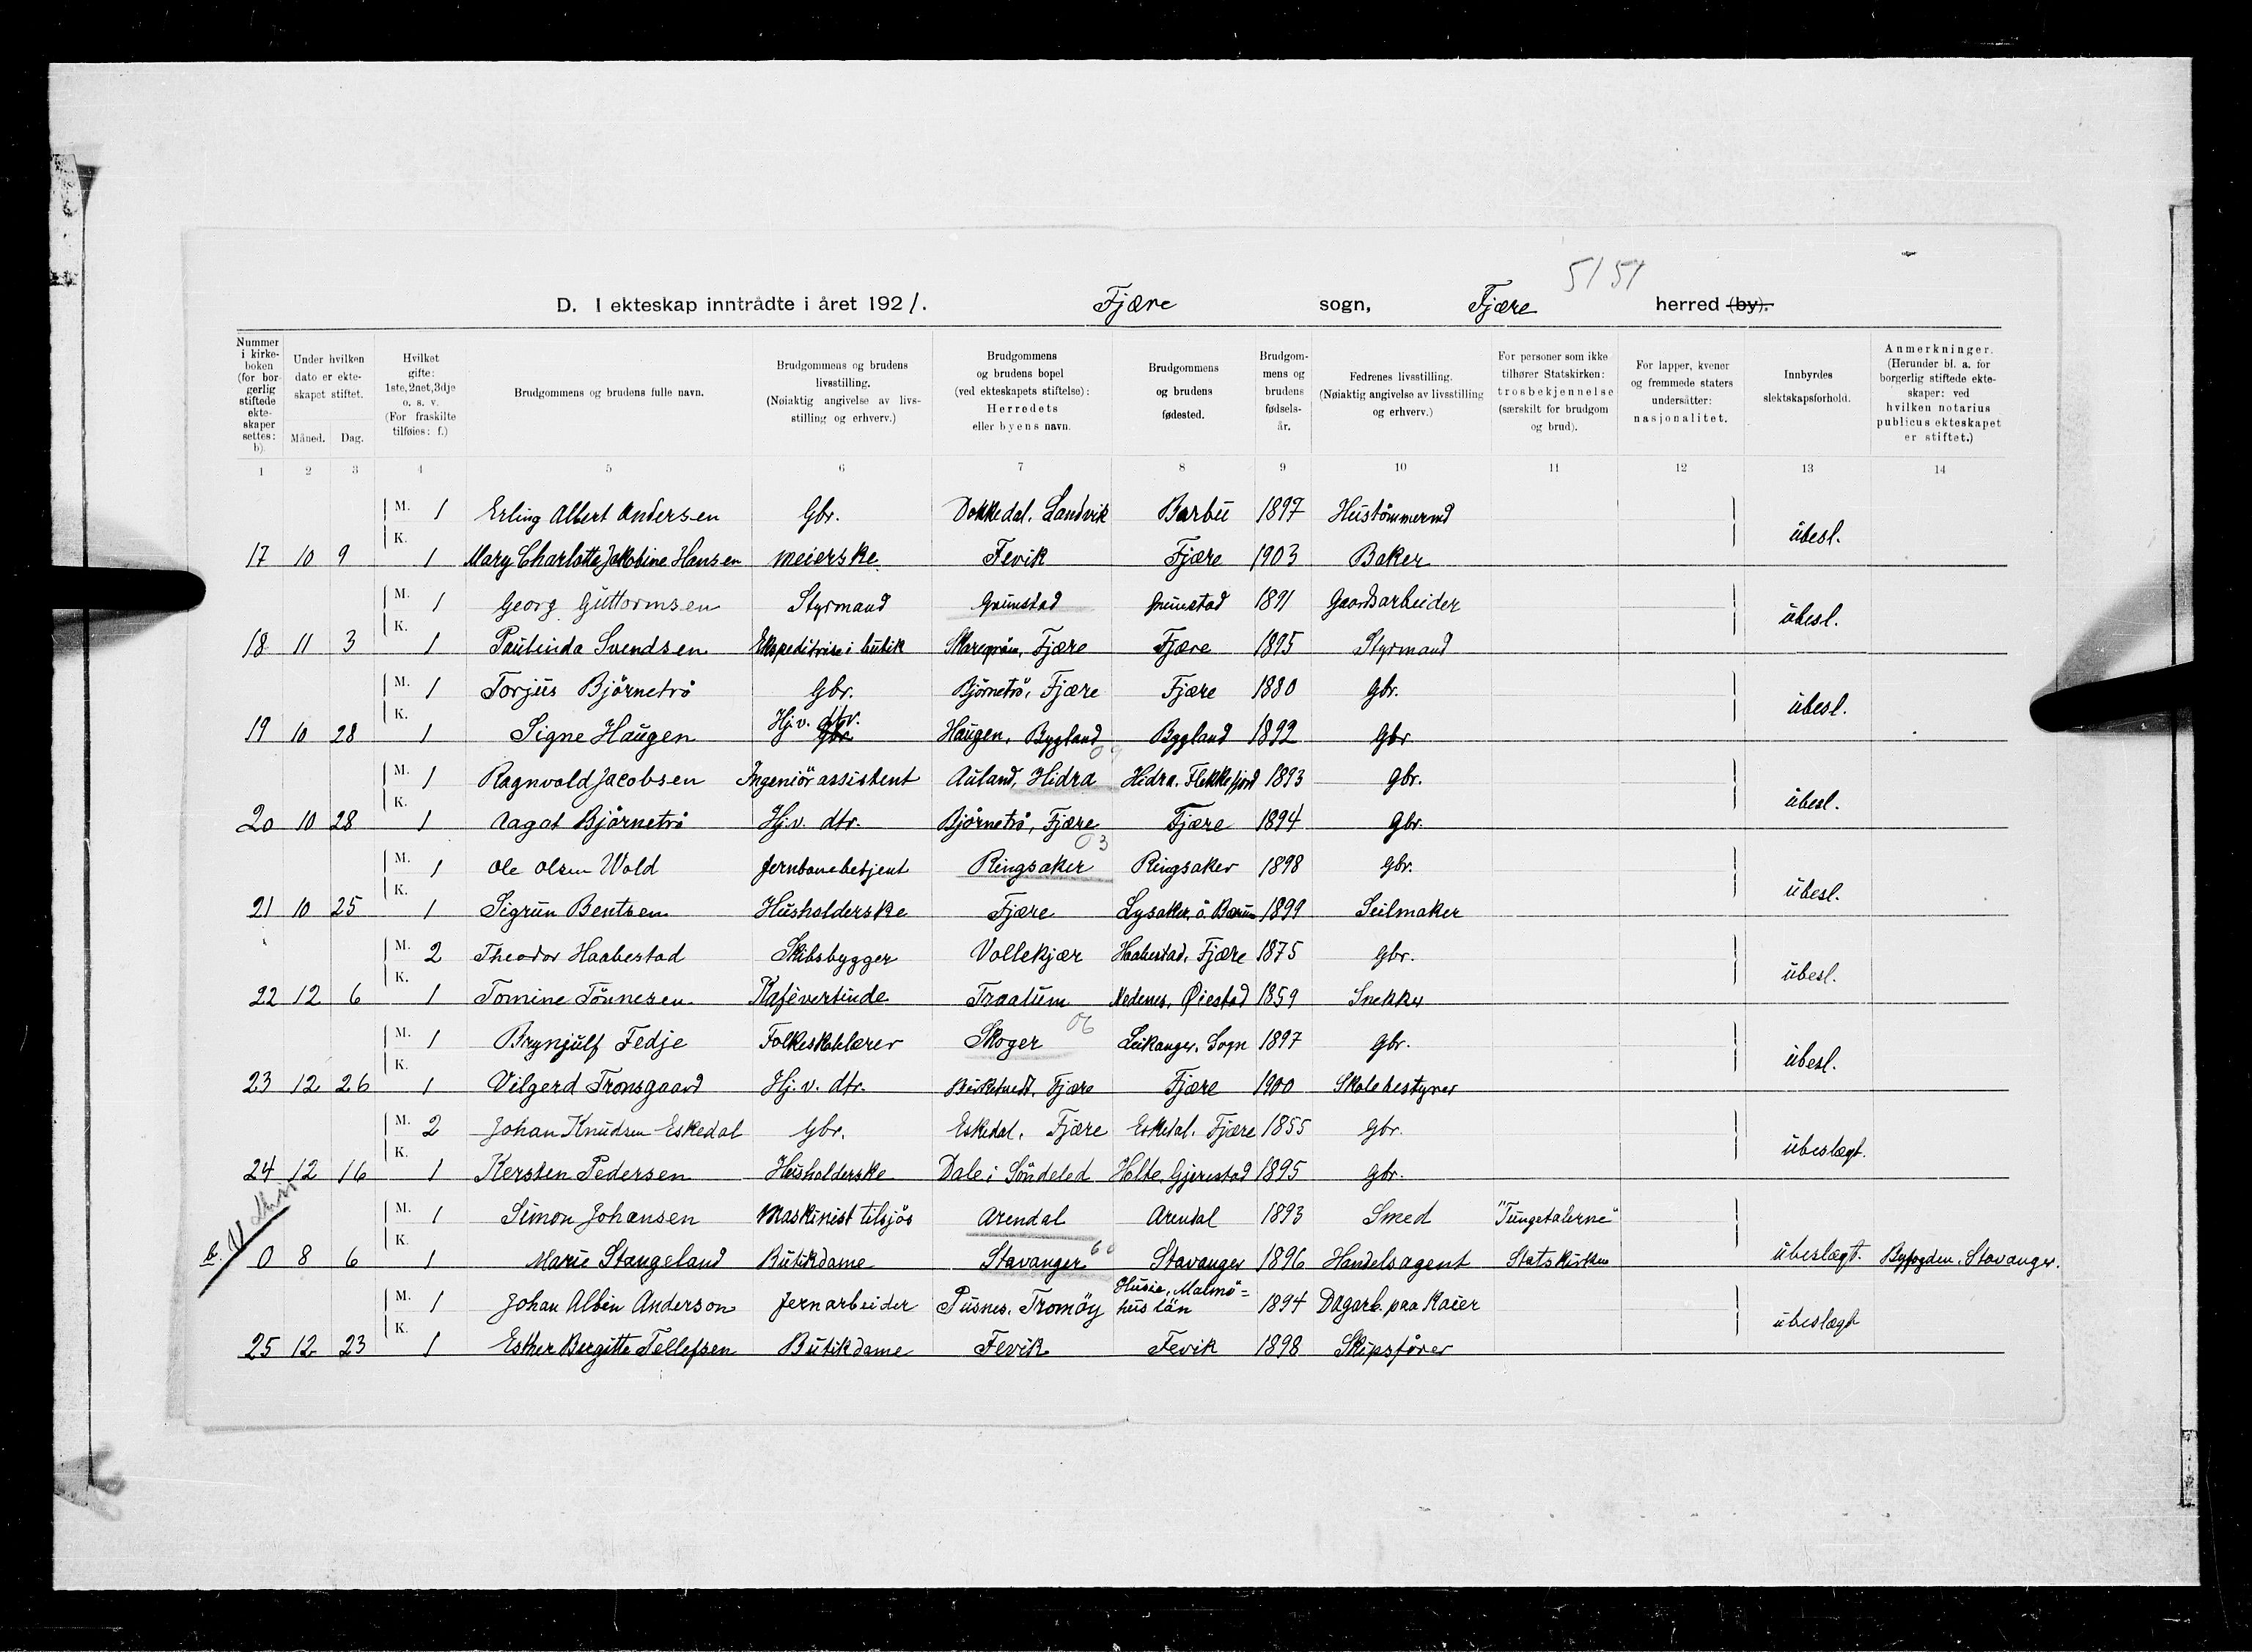 5/51
D. I ekteskap inntrådte i året 1921. Fjære sogn, Fjære herred (by).
Nummer i kirkeboken (for borgerlig stiftede ekteskaper settes: b). Under hvilken dato er ekteskapet stiftet. Måned. Dag. Hvilket gifte: 1ste, 2net, 3dje o. s. v. (For fraskilte tilføies: f.) Brudgommens og brudens fulle navn. Brudgommens og brudens livsstilling. (Nøiaktig angivelse av livsstilling og erhverv.) Brudgommens og brudens bopel (ved ekteskapets stiftelse): Herredets eller byens navn. Brudgommens og brudens fødested. Brudgommens og brudens fødselsår. Fedrenes livsstilling. (Nøiaktig angivelse av livsstilling og erhverv.) For personer som ikke tilhører Statskirken: trosbekjennelse (særskilt for brudgom og brud). For lapper, kvener og fremmede staters undersåtter: nasjonalitet. Innbyrdes slektskapsforhold. Anmerkninger. (Herunder bl. a. for borgerlig stiftede ekteskaper: ved hvilken notarius publicus ekteskapet er stiftet.)
1 2 3 4 5 6 7 8 9 10 11 12 13 14
M. 1 Erling Albert Andersen Gbr. Dokkedal. Landvik Barbu 1897 Hustømmermd
K. übesl.
17 10 9 1 Mary Charlotte Jakobine Hansen meierske Fevik Fjære 1903 Baker
M. 1 Georg Guttormsen Styrmand Grimstad Grimstad 1891 Gaardsarbeider
K. übesl.
18 11 3 1 Paulinda Svendsen Ekspeditrise i butik Fjære Fjære 1895 Styrmand
M. 1 Torjus Bjørnetrø Gbr. Bjørnetrø, Fjære Fjære 1880 Gbr.
K. übesl.
19 10 28 1 Signe Haugen Hj.v. dtr. Gbr. Haugen, Bygland Bygland 1892 Gbr
09
M. 1 Ragnvald Jacobsen Ingeniør assistent Auland, Hidra Hidra. Flekkefjord 1893 gbr.
K. übesl.
20 10 28 1 Aagot Bjørnetrø Hj.v. dtr. Bjørnetrø, Fjære Fjære 1894 Gbr.
03
M. 1 Ole Olsen Wold Jernbanebetjent Ringsaker Ringsaker 1898 Gbr.
K. übesl.
21 10 25 1 Sigrun Bentsen Husholderske Fjære Lysaker, ö. Bærum 1899 Seilmaker
M. 2 Theodor Haabestad Skibsbygger Vollekjær Haabestad, Fjære 1875 Gbr.
K. übesl.
22 12 6 1 Tomine Tønnesen Kafévertinde Traalum Nedenes, Øiestad 1859 Snekker
06
M. 1 Brynjulf Fedje Folkeskolelærer Skoger Leikanger. Sogn 1897 Gbr.
K. übesl.
23 12 26 1 Vilgerd Tronsgaard Hj.v. dtr. Fjære Fjære 1900 Skolebestyrer
M. 2 Johan Knudsen Eskedal Gbr. Eskedal. Fjære Eskedal. Fjære 1855 Gbr.
K. übeslægt.
24 12 16 1 Kersten Pedersen Husholderske Dale i Söndeled Holte, Gjerestad 1895 gbr.
M. 1 Simon Johansen Maskinist tilsjös Arendal Arendal 1893 Smed "Tungetalerne"
K.
b. 0 8 6 1 Marie Stangeland Butikdame Stavanger 60 Stavanger 1896 Handelsagent Statskirken übeslægt. Byfogden. Stavanger.
M. 1 Johan Albin Anderson Jernarbeider Pusnes. Tromöy Husie, Malmö=hus län 1894 Dagarb. paa Kaier
K. übeslægt
25 12 23 1 Esther Bergitte Tellefsen Butikdame Fevik Fevik 1898 Skipsfører